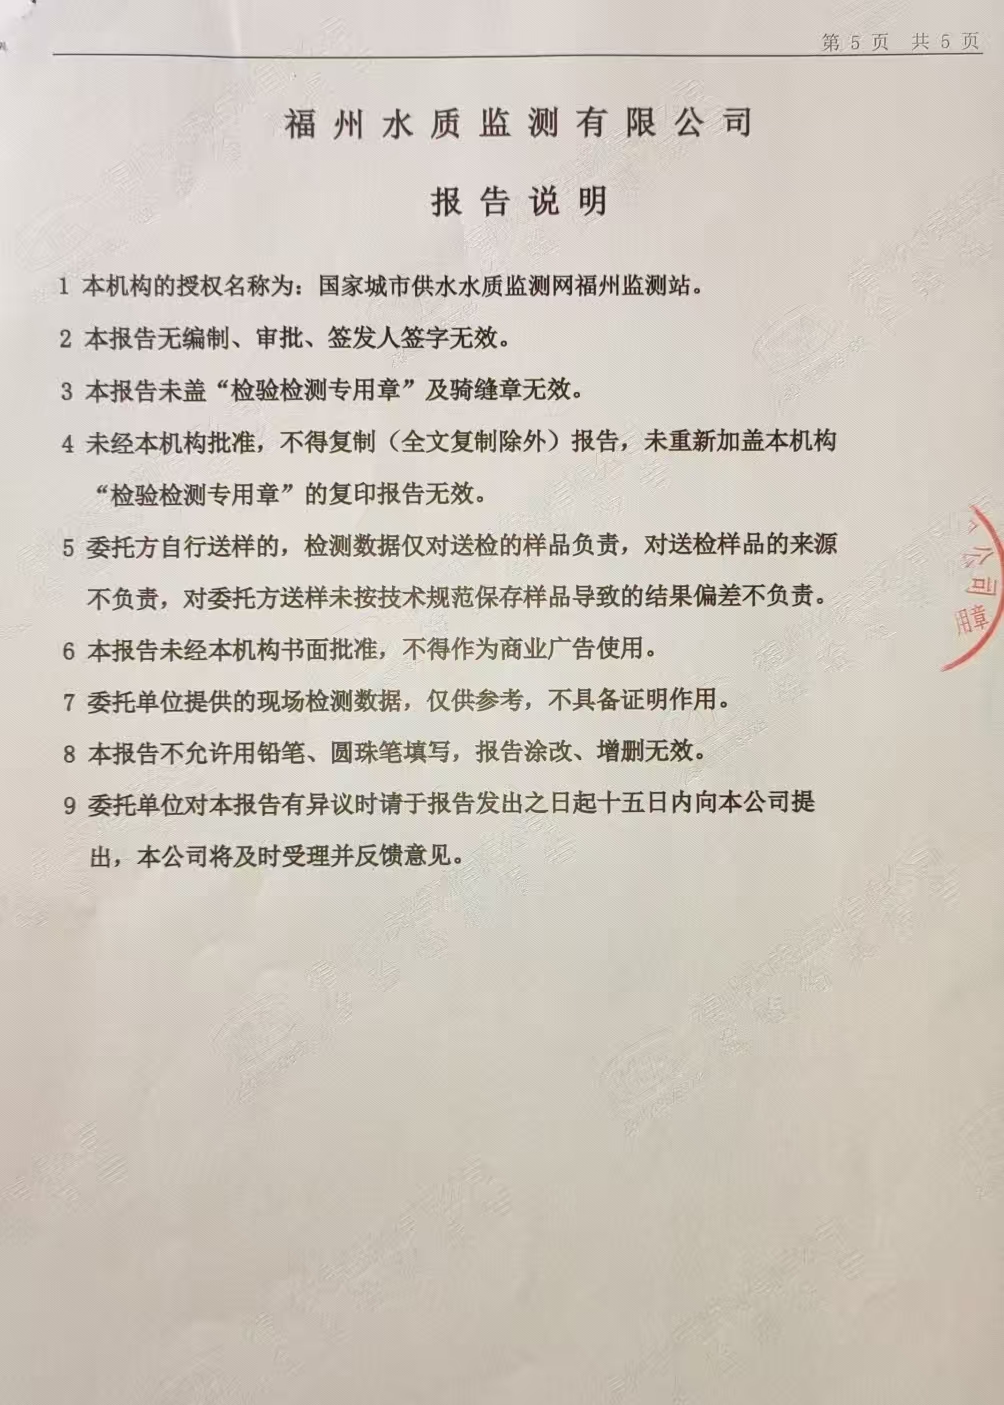 第 5 页 共 5 页
福州水质监测有限公司
报告说明
1 本机构的授权名称为：国家城市供水水质监测网福州监测站。
2 本报告无编制、审批、签发人签字无效。
3 本报告未盖“检验检测专用章”及骑缝章无效。
4 未经本机构批准，不得复制（全文复制除外）报告，未重新加盖本机构
“检验检测专用章”的复印报告无效。
5 委托方自行送样的，检测数据仅对送检的样品负责，对送检样品的来源
不负责，对委托方送样未按技术规范保存样品导致的结果偏差不负责。
6 本报告未经本机构书面批准，不得作为商业广告使用。
7 委托单位提供的现场检测数据，仅供参考，不具备证明作用。
8 本报告不允许用铅笔、圆珠笔填写，报告涂改、增删无效。
9 委托单位对本报告有异议时请于报告发出之日起十五日内向本公司提
出，本公司将及时受理并反馈意见。
公司
用章